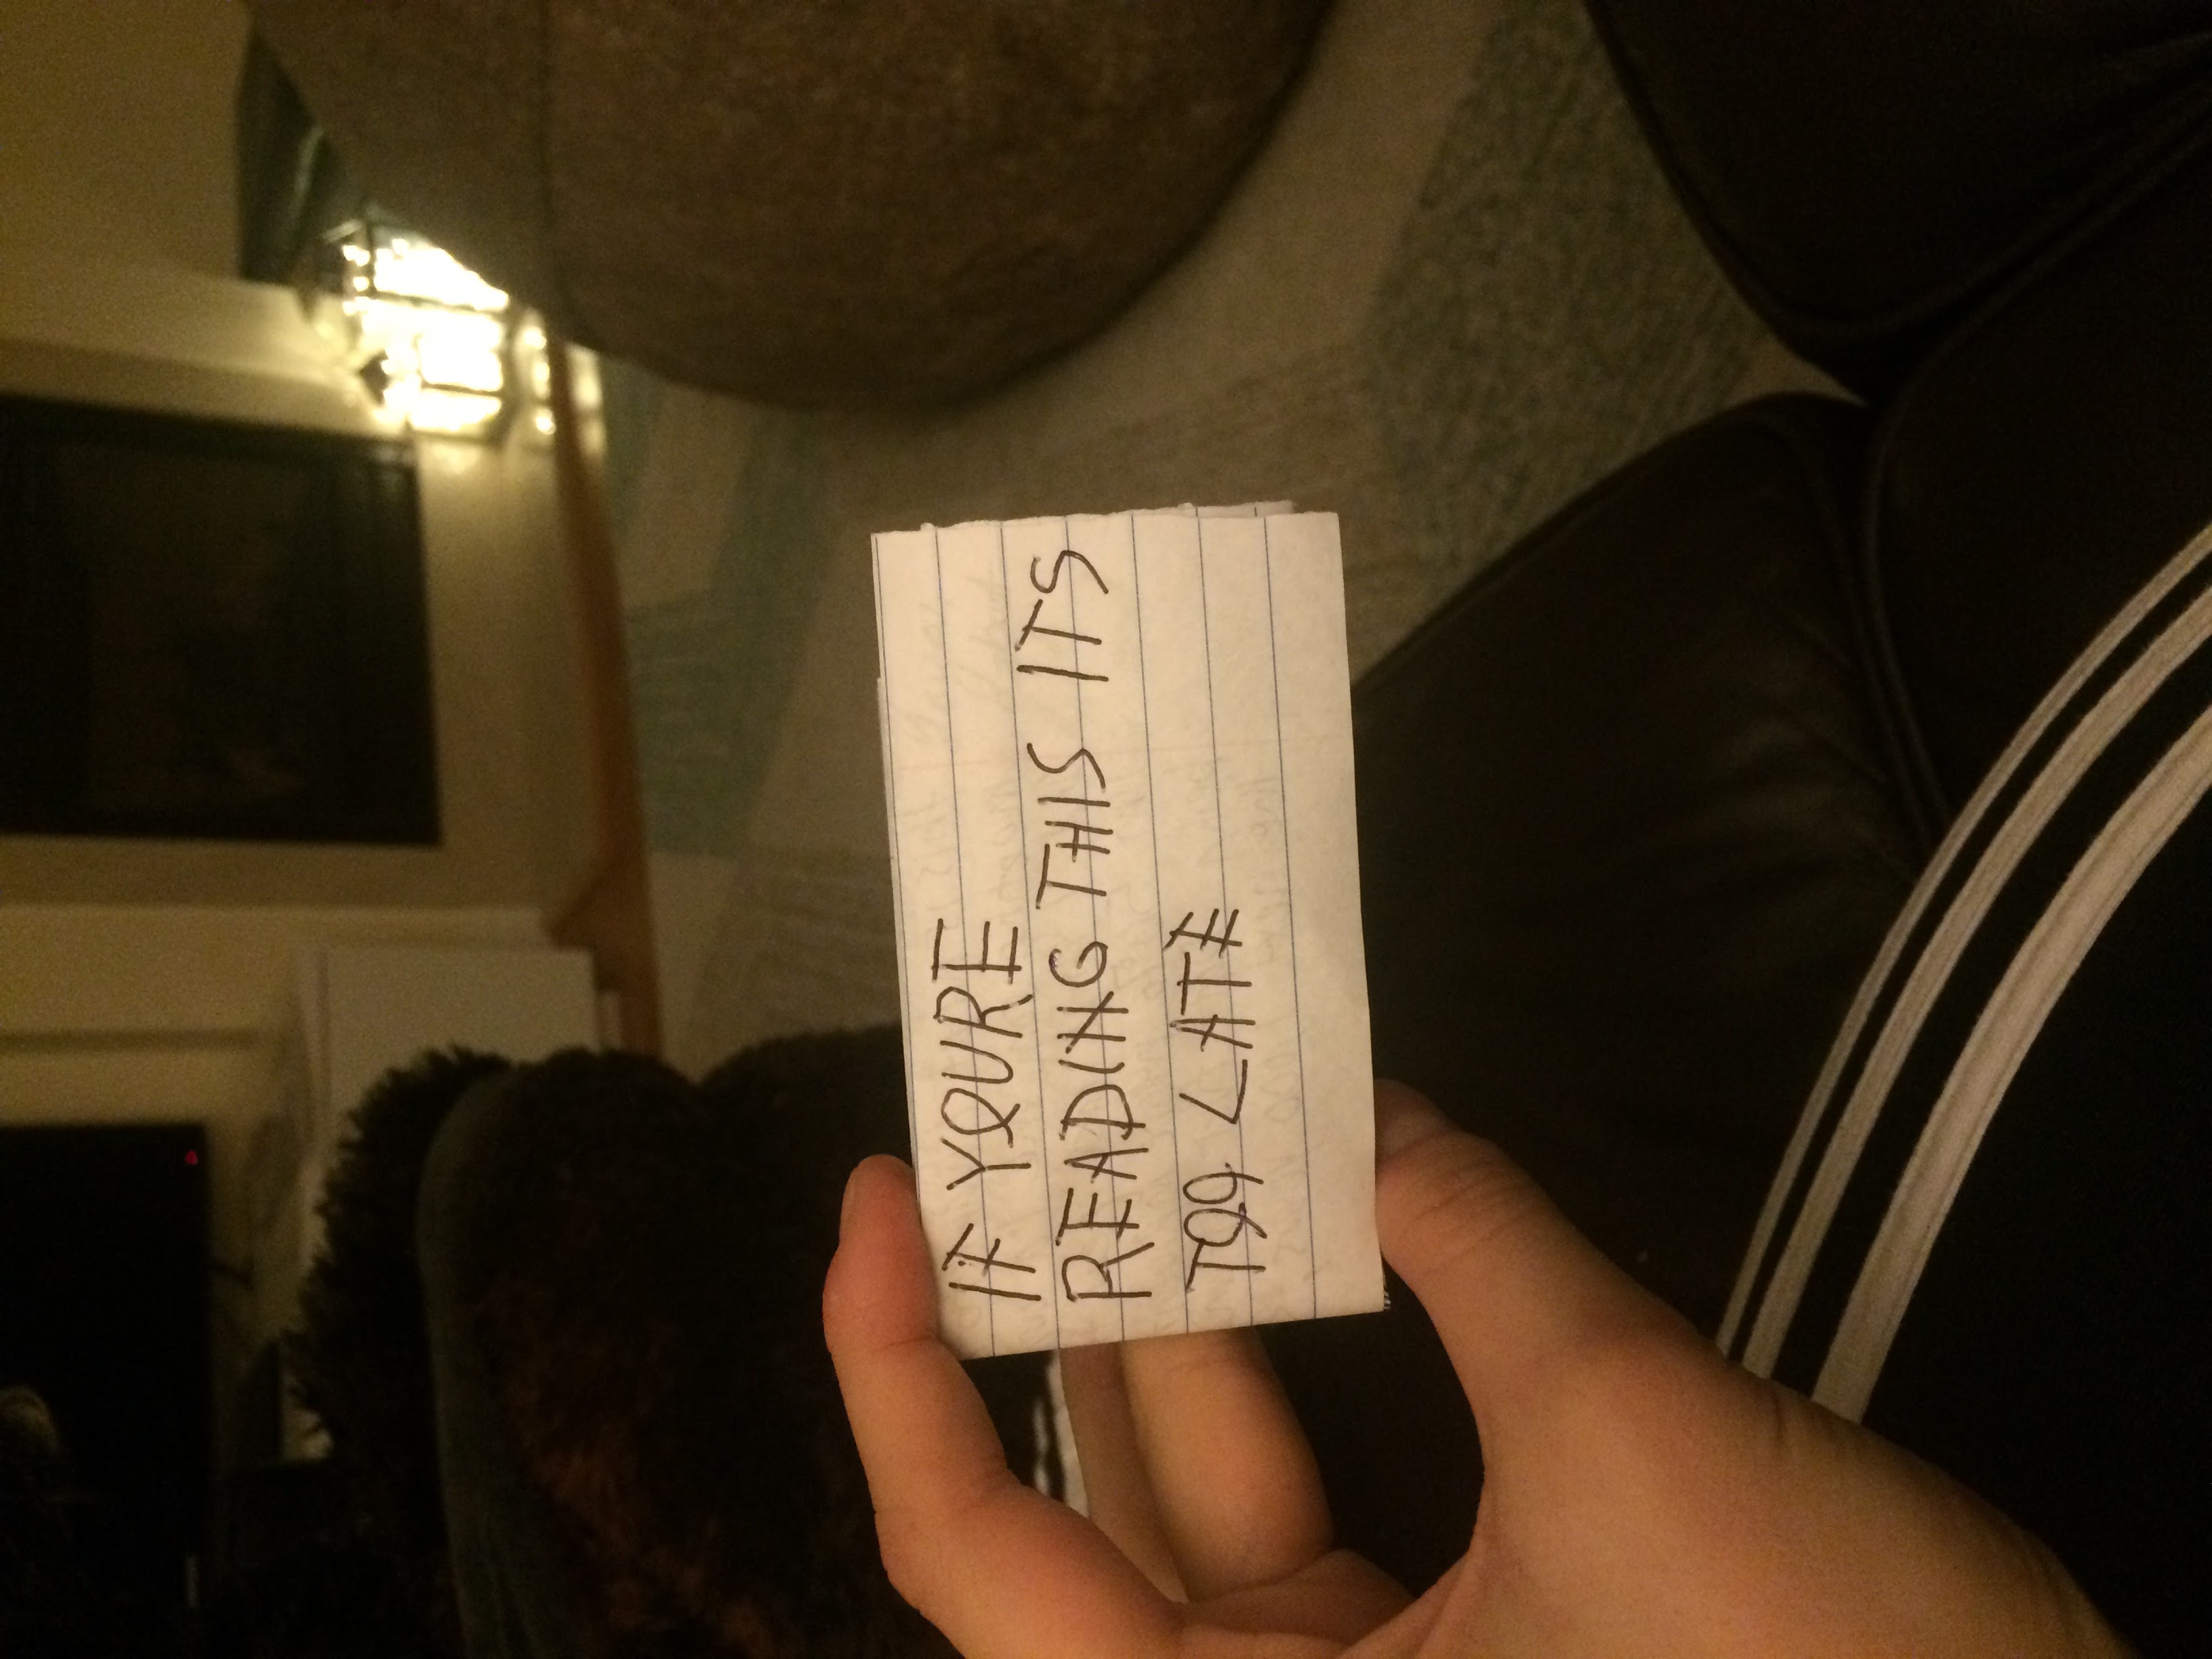 IF YOURE
READING THIS ITS
TOO LATE